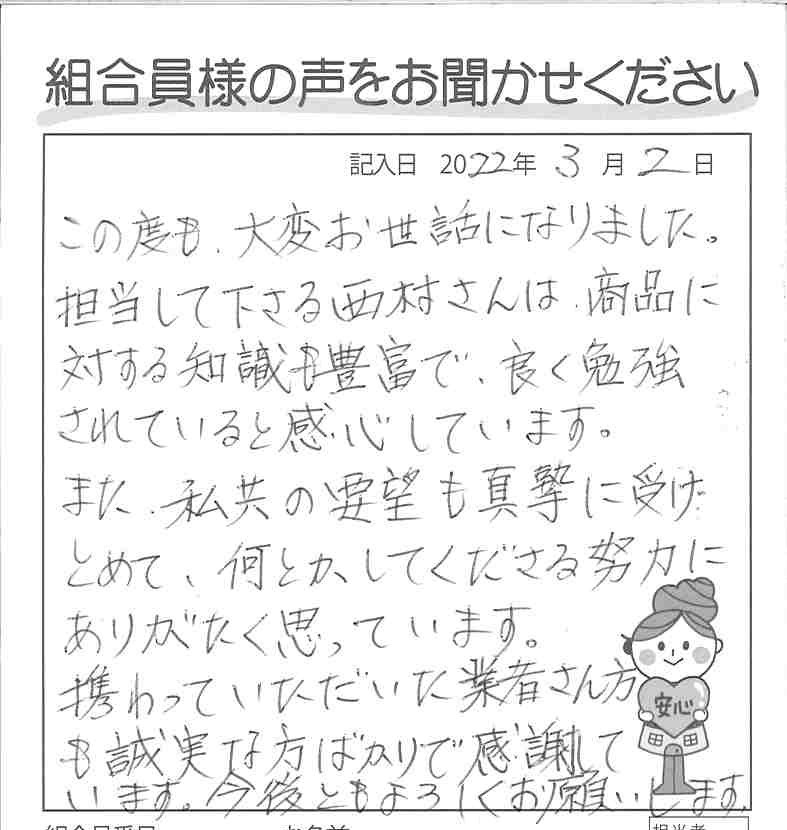 組合員様の声をお聞かせください
記入日 2022年 3月 2日
この度も、大変お世話になりました。
担当して下さる西村さんは、商品に
対する知識も豊富で、良く勉強
されていると感心しています。
また、私共の要望も真摯に受け
とめて、何とかしてくださる努力に
ありがたく思っています。
携わっていただいた業者さん方
も誠実な方ばかりで感謝して
います。今後ともよろしくお願いします。
安心